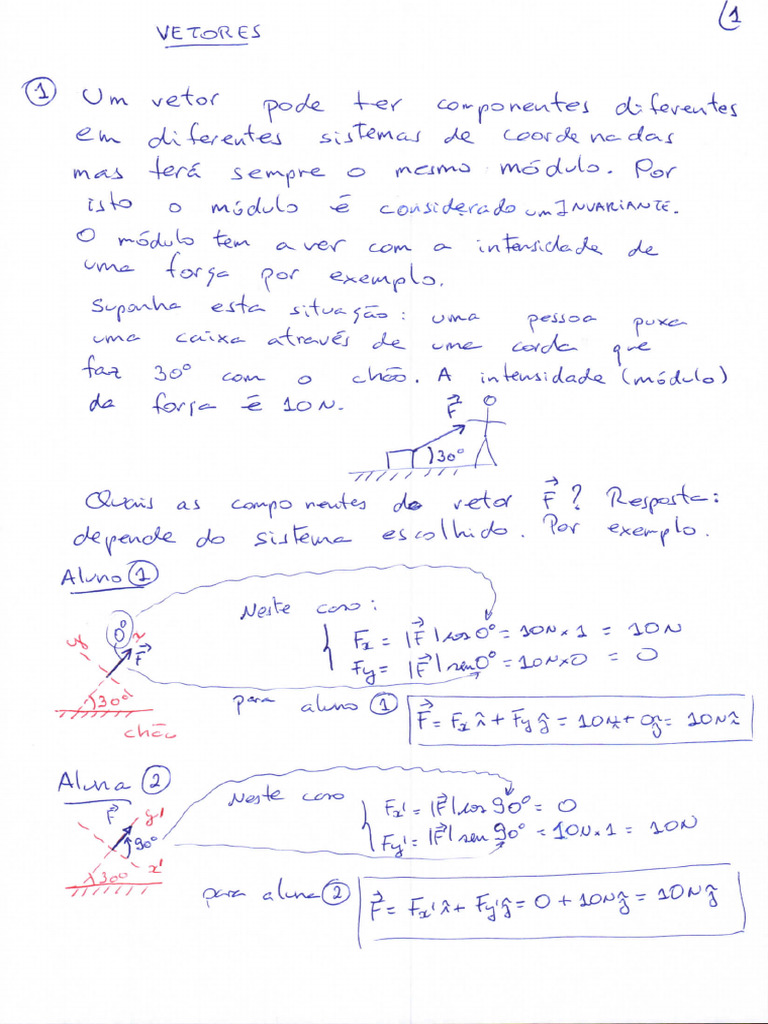 1
VETORES
① Um vetor pode ter componentes diferentes
em diferentes sistemas de coordenadas
mas terá sempre o mesmo módulo. Por
isto o módulo é considerado um INVARIANTE.
O módulo tem a ver com a intensidade de
uma força por exemplo.
Suponha esta situação: uma pessoa puxa
uma caixa através de uma corda que
faz 30° com o chão. A intensidade (módulo)
da força é 10N.
F⃗
30°
Quais as componentes do vetor F⃗? Resposta:
depende do sistema escolhido. Por exemplo.
Aluno ①
0°
y x
F⃗
30°
chão
Neste caso:
Fx = |F⃗| cos 0° = 10N × 1 = 10N
Fy = |F⃗| sen 0° = 10N × 0 = 0
para aluno ① F⃗ = Fx x̂ + Fy ŷ = 10N x̂ + 0ŷ = 10N x̂
Aluna ②
F⃗ y'
90°
x'
30°
Neste caso
Fx' = |F⃗| cos 90° = 0
Fy' = |F⃗| sen 90° = 10N × 1 = 10N
para aluna ② F⃗ = Fx' x̂ + Fy' ŷ = 0 + 10N ŷ = 10N ŷ